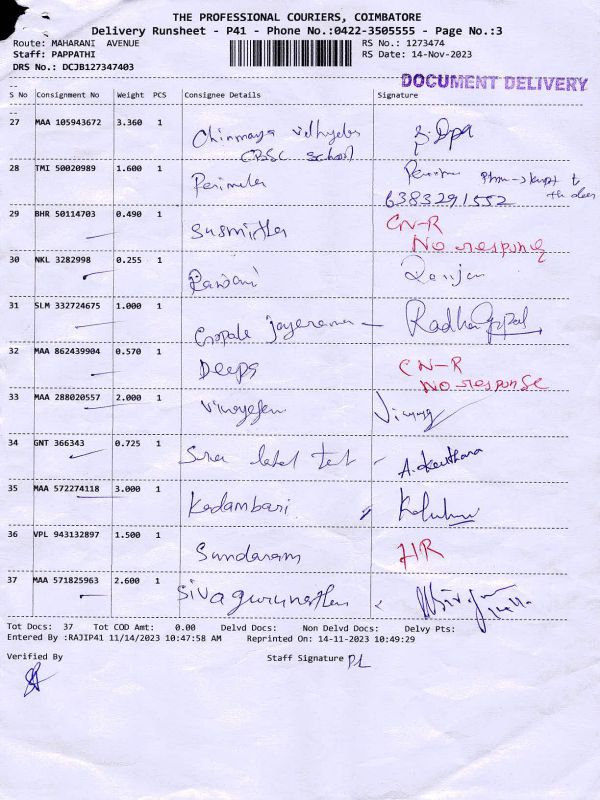 THE PROFESSIONAL COURIERS, COIMBATORE
Delivery Runsheet - P41 - Phone No.:0422-3505555 - Page No.:3
Route: MAHARANI AVENUE RS No.: 1273474
Staff: PAPPATHI RS Date: 14-Nov-2023
DRS No.: DCJB127347403
DOCUMENT DELIVERY
S No Consignment No Weight PCS Consignee Details Signature
27 MAA 105943672 3.360 1 Chinmaya
CBSC School
28 TMI 50020989 1.600 1
6383291552
29 BHR 50114703 0.490 1 Susmitha CN-R
No respong
30 NKL 3282998 0.255 1 Ranjani Ranjan
31 SLM 332724675 1.000 1 Gopale jayarama RadhaGopal
32 MAA 862439904 0.570 1 Deepa CN-R
No response
33 MAA 288020557 2.000 1
34 GNT 366343 0.725 1 test
35 MAA 572274118 3.000 1 Kadambari
36 VPL 943132897 1.500 1 Sundaram HR
37 MAA 571825963 2.600 1 Sivagurunathan
Tot Docs: 37 Tot COD Amt: 0.00 Delvd Docs: Non Delvd Docs: Delvy Pts:
Entered By :RAJIP41 11/14/2023 10:47:58 AM Reprinted On: 14-11-2023 10:49:29
Verified By Staff Signature PL